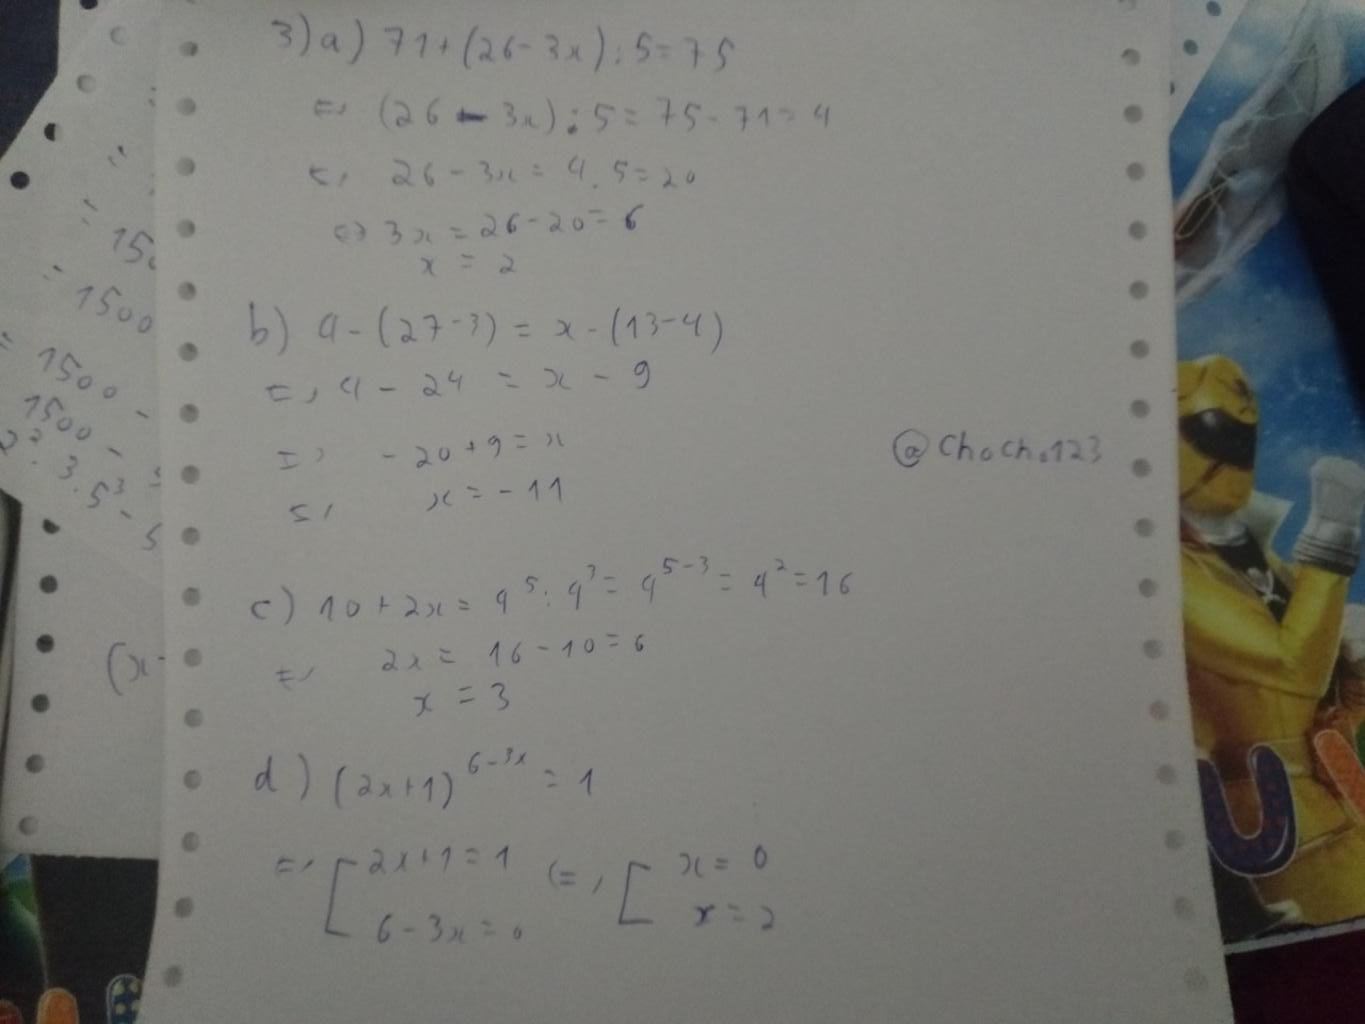 3) a) 71 + (26 - 3x) : 5 = 75
<=> (26 - 3x) : 5 = 75 - 71 = 4
<=> 26 - 3x = 4 . 5 = 20
<=> 3x = 26 - 20 = 6
x = 2
b) 4 - (27 - 3) = x - (13 - 4)
<=> 4 - 24 = x - 9
<=> - 20 + 9 = x
<=> x = - 11
@ChoCho123
c) 10 + 2x = 4^5 : 4^3 = 4^{5-3} = 4^2 = 16
<=> 2x = 16 - 10 = 6
x = 3
d) (2x+1)^{6-3x} = 1
<=> [ 2x+1 = 1 <=> [ x = 0
6 - 3x = 0 x = 2
150
1500
1500
1500 -
2^2 . 3 . 5^3 - 5
(x -